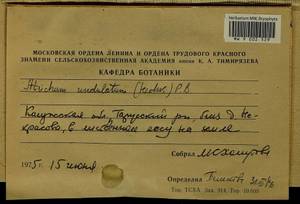 Herbarium MW, Bryophyta
МОСКОВСКАЯ ОРДЕНА ЛЕНИНА И ОРДЕНА ТРУДОВОГО КРАСНОГО
ЗНАМЕНИ СЕЛЬСКОХОЗЯЙСТВЕННАЯ АКАДЕМИЯ имени К. А. ТИМИРЯЗЕВА
КАФЕДРА БОТАНИКИ
Atrichum undulatum (Hedw.) P.B.
Калужская обл, Тарусский р-н, близ д. Не-
красово, в лиственном лесу на
1975 г 15 июня
Собрал
Определил
Тип. ТСХА